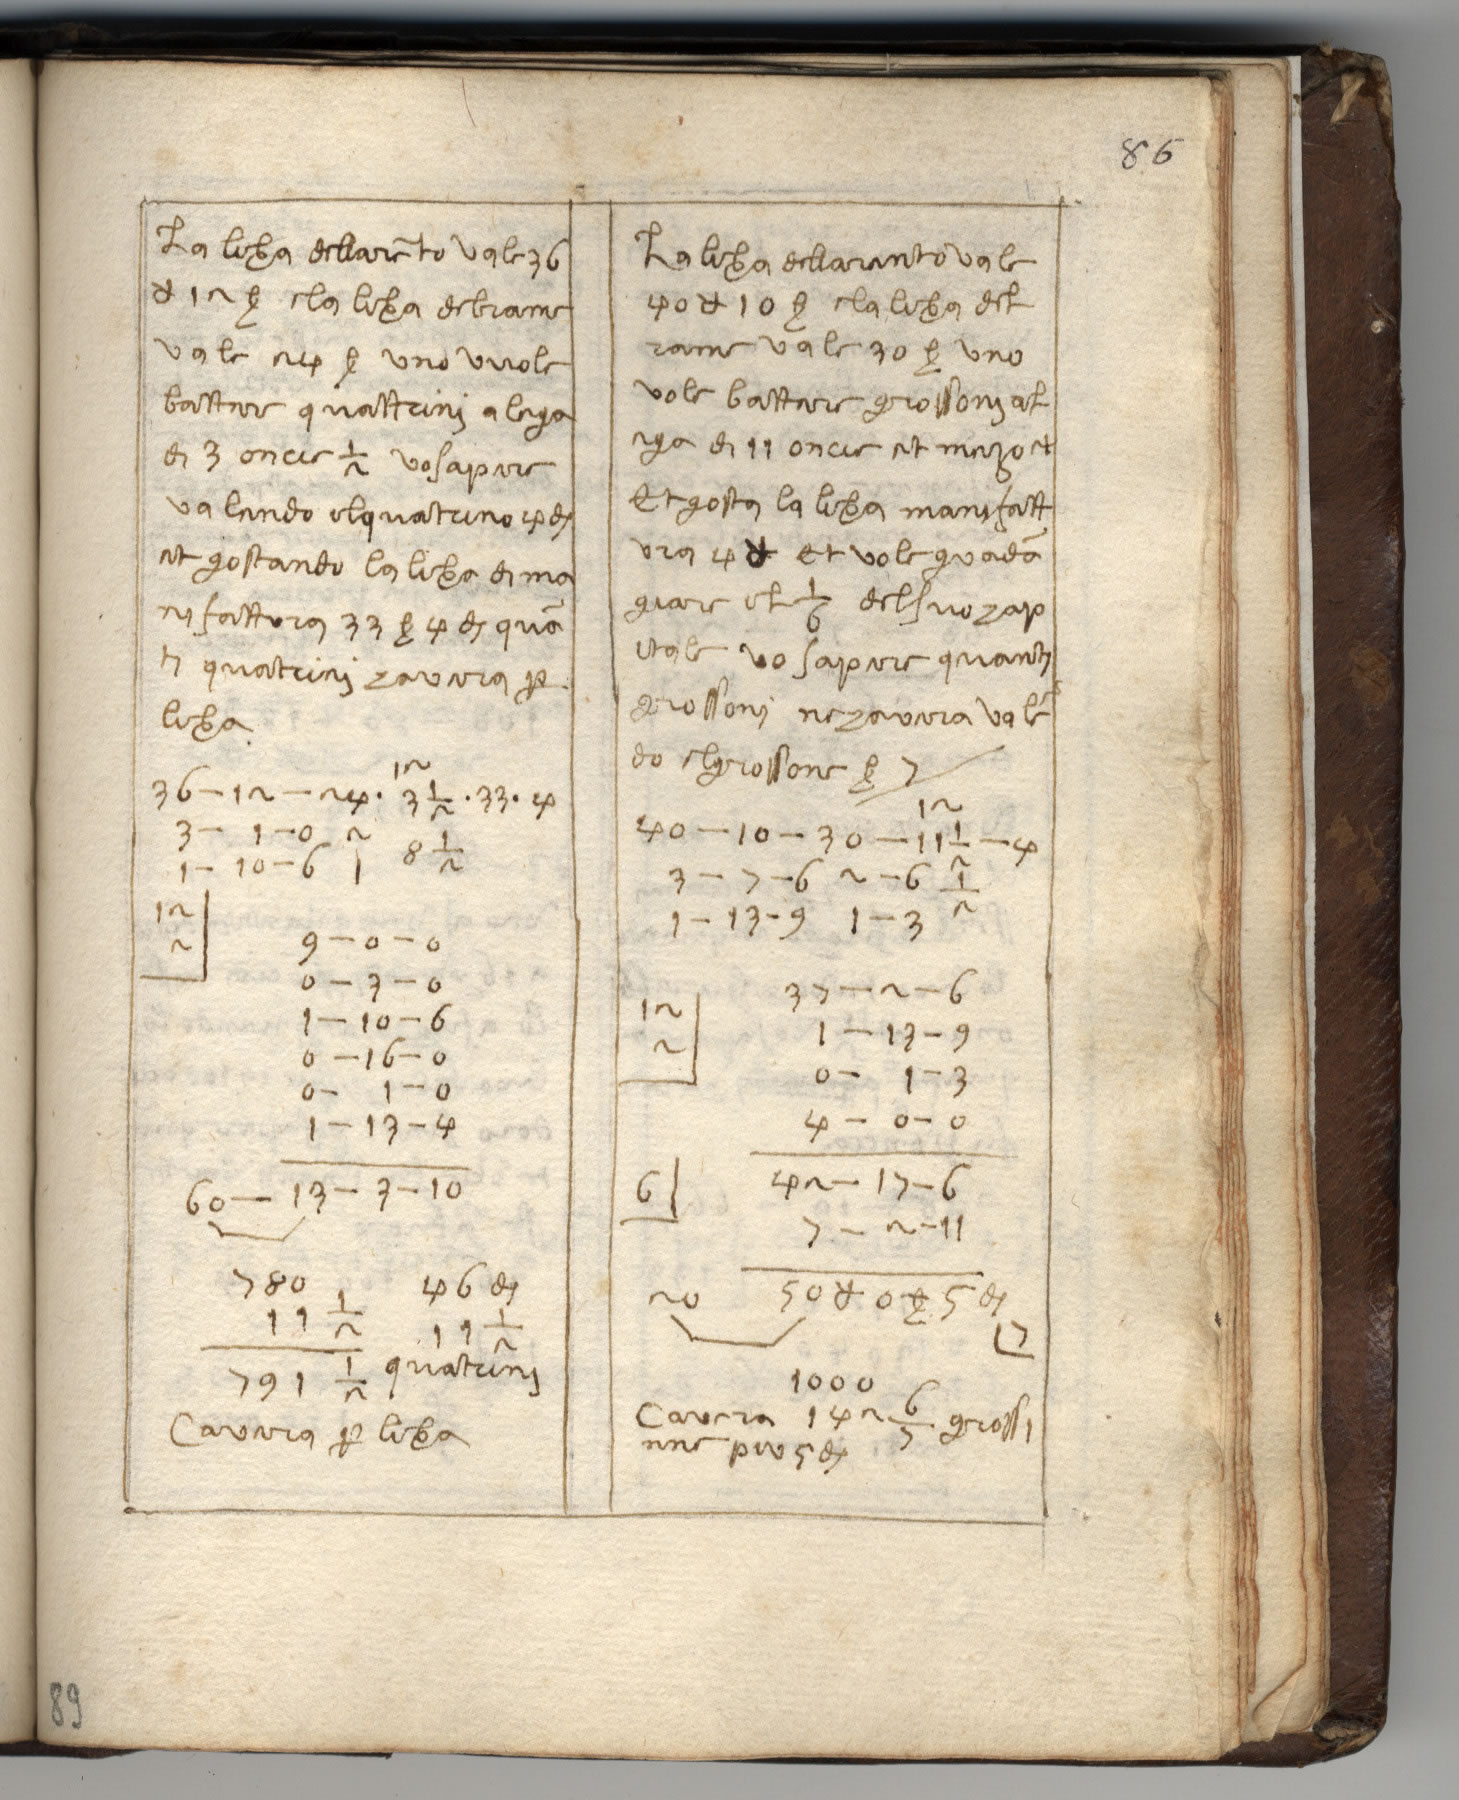 86
La libra dellarēto vale 36
₰ 12 ß ela libra del rame
vale 24 ß uno vuole
battere quattrinj a lega
di 3 oncie 1/2 vo sapere
valendo el quatrino 4 ds
et gostando la libra di ma
nifattura 33 ß 4 ds quā
ti quatrinj zavera p
libra
12
36 – 12 – 24 · 3 1/2 · 33 · 4
3 – 1 – 0 2 8 1/2
1 – 10 – 6 1
12
2
9 – 0 – 0
0 – 3 – 0
1 – 10 – 6
0 – 16 – 0
0 – 1 – 0
1 – 13 – 4
60 – 13 – 3 – 10
780 46 ds
11 1/2 11 1/2
791 1/2 quatrinj
Cavera p libra
La libra dellarento vale
40 ₰ 10 ß ela libra del
rame vale 30 ß uno
vole battere grossonj al
ega di 11 oncie et mezo et
Et gosta la libra manifatt
ura 4 ₰ et vole guadā
giare el 1/6 del suo zap
itale vo sapere quanti
grossonj ne zavera valē
do el grossone ß 7
12
40 – 10 – 30 – 11 1/2 – 4
3 – 7 – 6 2 – 6 1/2
1 – 13 – 9 1 – 3
12
2
37 – 2 – 6
1 – 13 – 9
0 – 1 – 3
4 – 0 – 0
6
42 – 17 – 6
7 – 2 – 11
20 50 ₰ 0 ß 5 ds
7
1000
Cavera 142 6/7 grossi
nne piu 5 ds
89